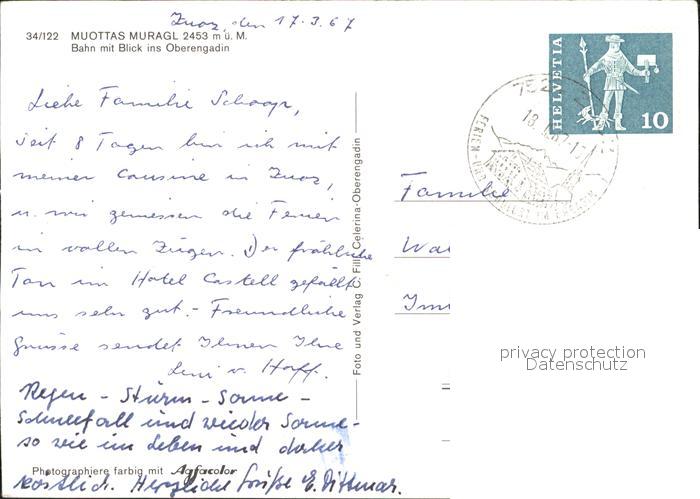 Zuoz, den 17.3.67
34/122 MUOTTAS MURAGL 2453 m ü. M.
Bahn mit Blick ins Oberengadin
Liebe Familie Schoop,
seit 8 Tagen bin ich mit
meiner Cousine in Zuoz,
u. wir geniessen die Ferien
in vollen Zügen. Der fröhliche
Ton im Hotel Castell gefällt
uns sehr gut. - Freundliche
Grüsse sendet Ihnen Ihre
Leni v. Hoff.
Regen - Sturm - Sonne -
Schneefall und wieder Sonne -
so wie im Leben und daher
Photographiere farbig mit Agfacolor
köstlich. Herzliche Grüße E. Dittmar.
Foto und Verlag C. Filli, Celerina-Oberengadin
HELVETIA
10
Familie
privacy protection
Datenschutz